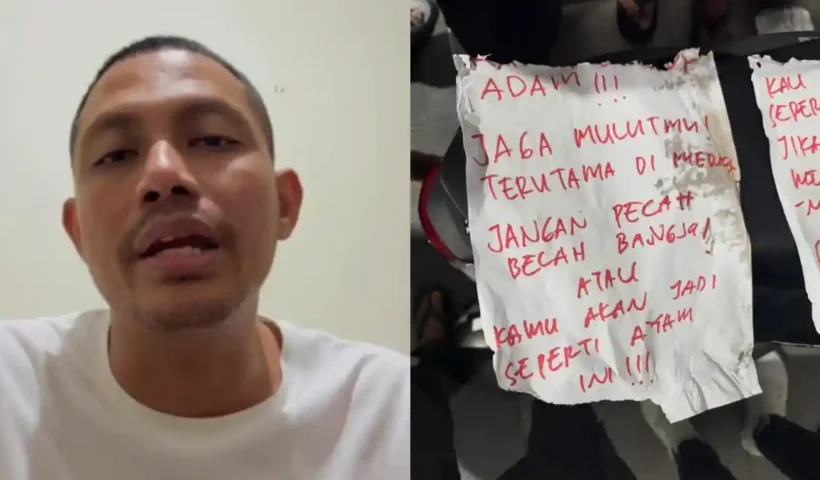 ADAM !!!
JAGA MULUTMU!
TERUTAMA DI
JANGAN PECAH
BECAH BANGSA!
ATAU
KAMU AKAN JADI
SEPERTI AYAM
INI!!!
KAU
SEPER
JIKA